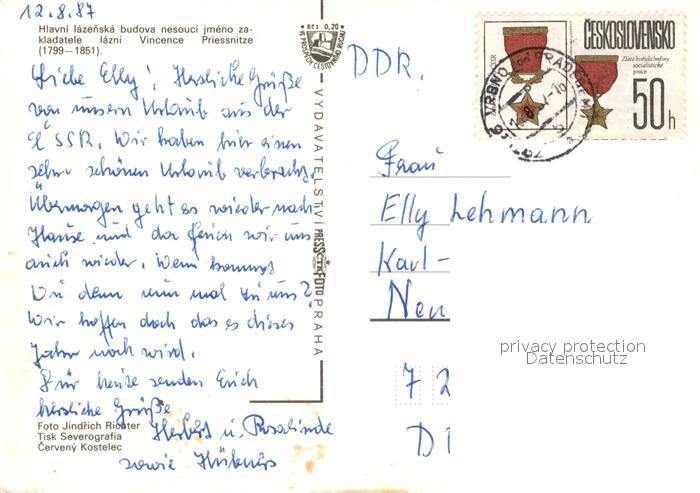 12.8.87
Hlavní lázeňská budova nesoucí jméno za-
kladatele lázní Vincence Priessnitze
(1799—1851).
Kčs 0,20
VE PROSPĚCH CESTOVNÍHO RUCHU
Liebe Elly! Herzliche Grüße
von unsern Urlaub aus der
ČSSR. Wir haben hier einen
sehr schönen Urlaub verbracht.
Übermorgen geht es wieder nach
Hause und da freun wir uns
auch wieder. Wenn kommst
Du denn nun mal zu uns?
Wir hoffen doch das es dieses
Jahr noch wird.
Für heute senden Euch
herzliche Grüße
Herbert u. Rosalinde
sowie Hübners
Foto Jindřich Richter
Tisk Severografia
Červený Kostelec
VYDAVATELSTVÍ PRESSFOTO PRAHA
ČTK
DDR.
ČESKOSLOVENSKO
Zlatá hvězda hrdiny
socialistické
práce
50 h
VRBNO pod PRADĚDEM
Frau
Elly Lehmann
Karl-
Neu
7 2
D
privacy protection
Datenschutz